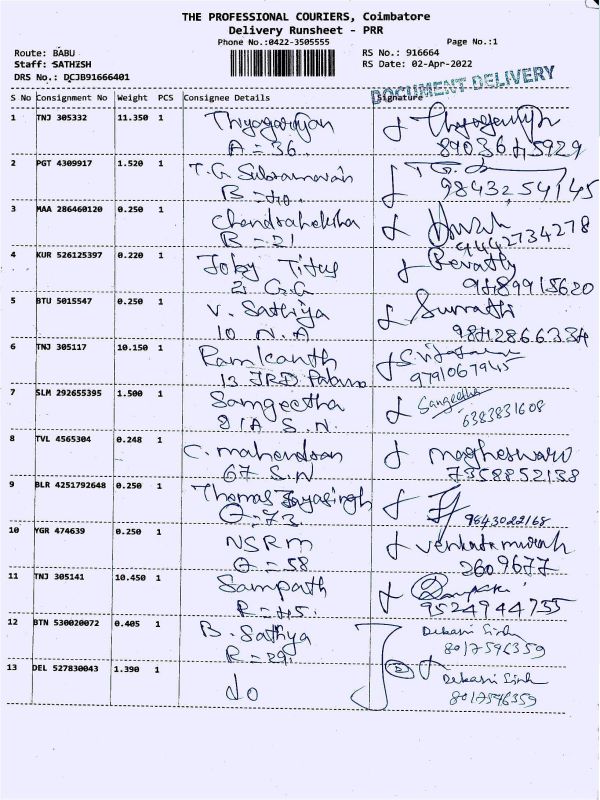 THE PROFESSIONAL COURIERS, Coimbatore
Delivery Runsheet - PRR
Phone No.:0422-3505555
Page No.:1
Route: BABU
RS No.: 916664
Staff: SATHISH
RS Date: 02-Apr-2022
DRS No.: DCJB91666401
DOCUMENT DELIVERY
S No Consignment No Weight PCS Consignee Details Signature
1 TNJ 305332 11.350 1 Thyagarajan
A = 36
2 PGT 4309917 1.520 1 T.G. Subramanian
B = 40
3 MAA 286460120 0.250 1 Chandrashekha
B = 21 9442734278
4 KUR 526125397 0.220 1 Joby Titus Revathy
5 BTU 5015547 0.250 1 V. Sathiya Sumathi
10 N.A
6 TNJ 305117 10.150 1 Ramkanth
13 9791067945
7 SLM 292655395 1.500 1 Sangeetha Sangeetha
21A S.N. 6383831608
8 TVL 4565304 0.248 1 C. mahendran magheswari
67 S.N 7358852138
9 BLR 4251792648 0.250 1 Thomas Jayasingh
Q = 73 9843022168
10 YGR 474639 0.250 1 NSRM
Q = 58 2609677
11 TNJ 305141 10.450 1 Sampath
R = 45. 9524944755
12 BTN 530020072 0.405 1 B. Sathya
R = 29. 8017596359
13 DEL 527830043 1.390 1 do
8017596359